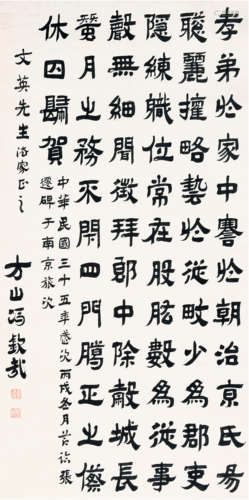 孝弟於家中謇於朝治京氏易
聰麗權略藝於從畋少為郡吏
隱練職位常在股肱數為從事
聲無細聞徵拜郎中除穀城長
蠶月之務不閉四門臘正之傺
休囚歸賀
中華民國三十五年歲次丙戌冬月節臨張
遷碑于南京旅次
文英先生法家正之
方山馮欽哉